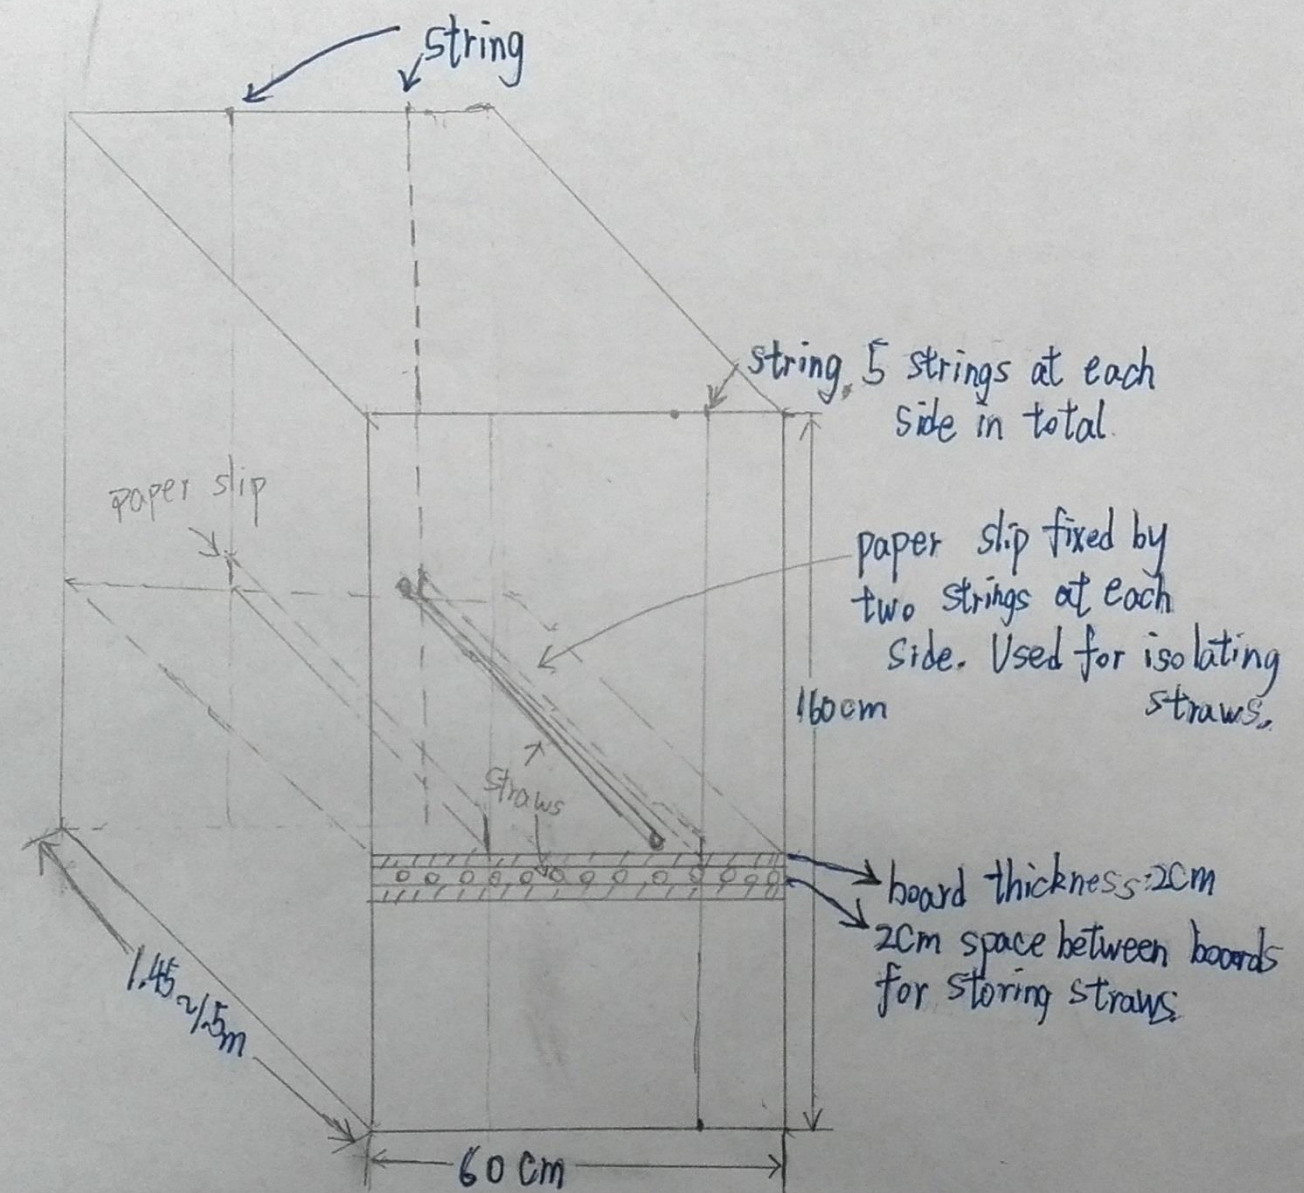 string
string. 5 strings at each
side in total.
paper slip
paper slip fixed by
two strings at each
side. Used for isolating
straws.
160cm
straws
board thickness:2cm
2cm space between boards
for storing straws
1.45~1.5m
60cm